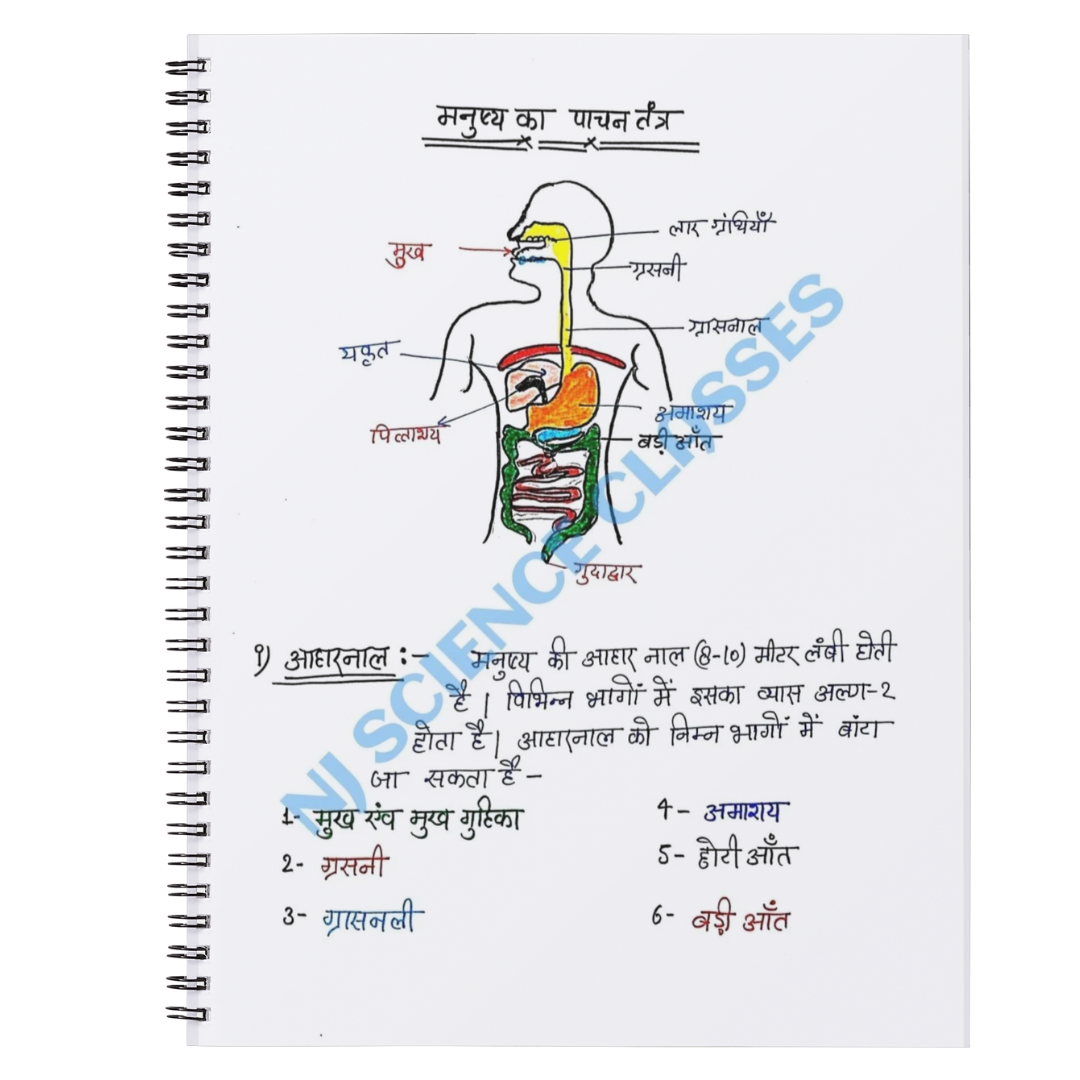 मनुष्य का पाचन तंत्र
लार ग्रंथियाँ
मुख
ग्रसनी
ग्रासनाल
यकृत
अमाशय
पित्ताशय
बड़ी आँत
गुदाद्वार
१) आहारनाल :- मनुष्य की आहार नाल (8-10) मीटर लंबी होती
है | विभिन्न भागों में इसका व्यास अलग-२
होता है | आहारनाल को निम्न भागों में बांटा
जा सकता है -
1- मुख एंव मुख गुहिका
4- अमाशय
2- ग्रसनी
5- छोटी आँत
3- ग्रासनली
6- बड़ी आँत
NJ SCIENCE CLOSSES